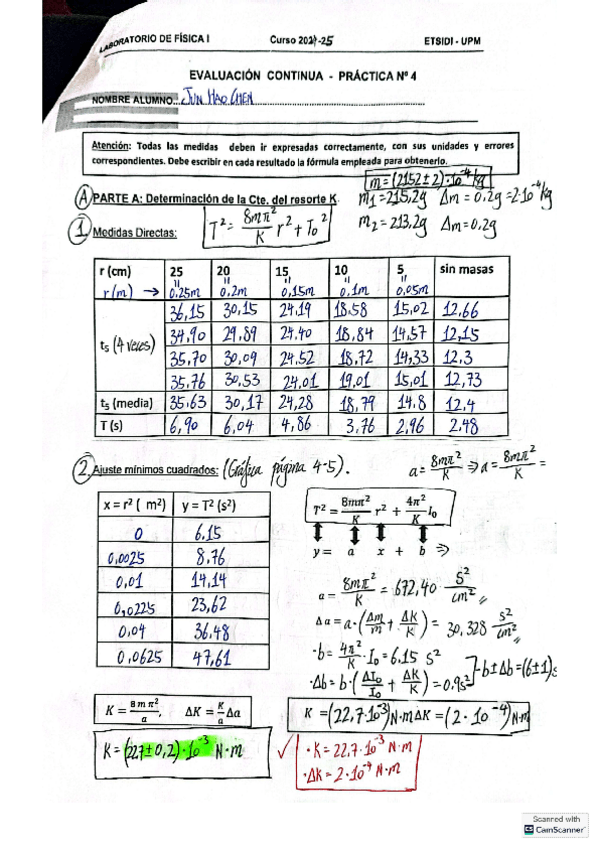 LABORATORIO DE FÍSICA I Curso 2024-25 ETSIDI - UPM
EVALUACIÓN CONTINUA - PRÁCTICA Nº 4
NOMBRE ALUMNO... JUN HAO CHEN
Atención: Todas las medidas deben ir expresadas correctamente, con sus unidades y errores
correspondientes. Debe escribir en cada resultado la fórmula empleada para obtenerlo.
m = (2152 ± 2)·10⁻⁴ kg
A PARTE A: Determinación de la Cte. del resorte K m₁ = 215,2g Δm = 0,2g = 2·10⁻⁴ kg
1. Medidas Directas: T² = 8mπ²/K r² + T₀² m₂ = 213,2g Δm = 0,2g
r (cm) 25 20 15 10 5 sin masas
r (m) → 0,25m 0,2m 0,15m 0,1m 0,05m
t₅ (4 veces) 36,15 30,15 24,19 18,58 15,02 12,66
34,90 29,89 24,40 18,84 14,57 12,15
35,70 30,09 24,52 18,72 14,33 12,3
35,76 30,53 24,01 19,01 15,01 12,73
t₅ (media) 35,63 30,17 24,28 18,79 14,8 12,4
T (s) 6,90 6,04 4,86 3,76 2,96 2,48
2. Ajuste mínimos cuadrados: (Gráfica página 4-5). a = 8mπ²/K ⇒ a = 8mπ²/K =
x = r² ( m²) y = T² (s²)
0 6,15
0,0025 8,76
0,01 14,14
0,0225 23,62
0,04 36,48
0,0625 47,61
T² = 8mπ²/K r² + 4π²/K I₀
y = a x + b ⇒
a = 8mπ²/K = 672,40 s²/m²
Δa = a·(Δm/m + ΔK/K) = 30,328 s²/m²
·b = 4π²/K · I₀ = 6,15 s²
·Δb = b·(ΔI₀/I₀ + ΔK/K) = 0,9s² b ± Δb = (6 ± 1)s
K = 8 m π²/a, ΔK = K/a Δa
K = (22,7·10⁻³) N·m ΔK = (2·10⁻⁴) N·m
K = (22,7 ± 0,2)·10⁻³ N·m
✓ ·K = 22,7·10⁻³ N·m
·ΔK = 2·10⁻⁴ N·m
Scanned with
CS CamScanner